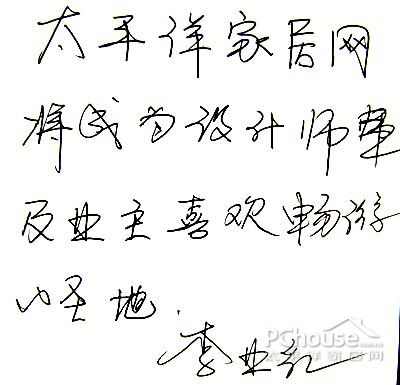 太平洋家居网
将成为设计师
及业主喜欢畅游
圣地.
李业红
PChouse
太平洋家居网